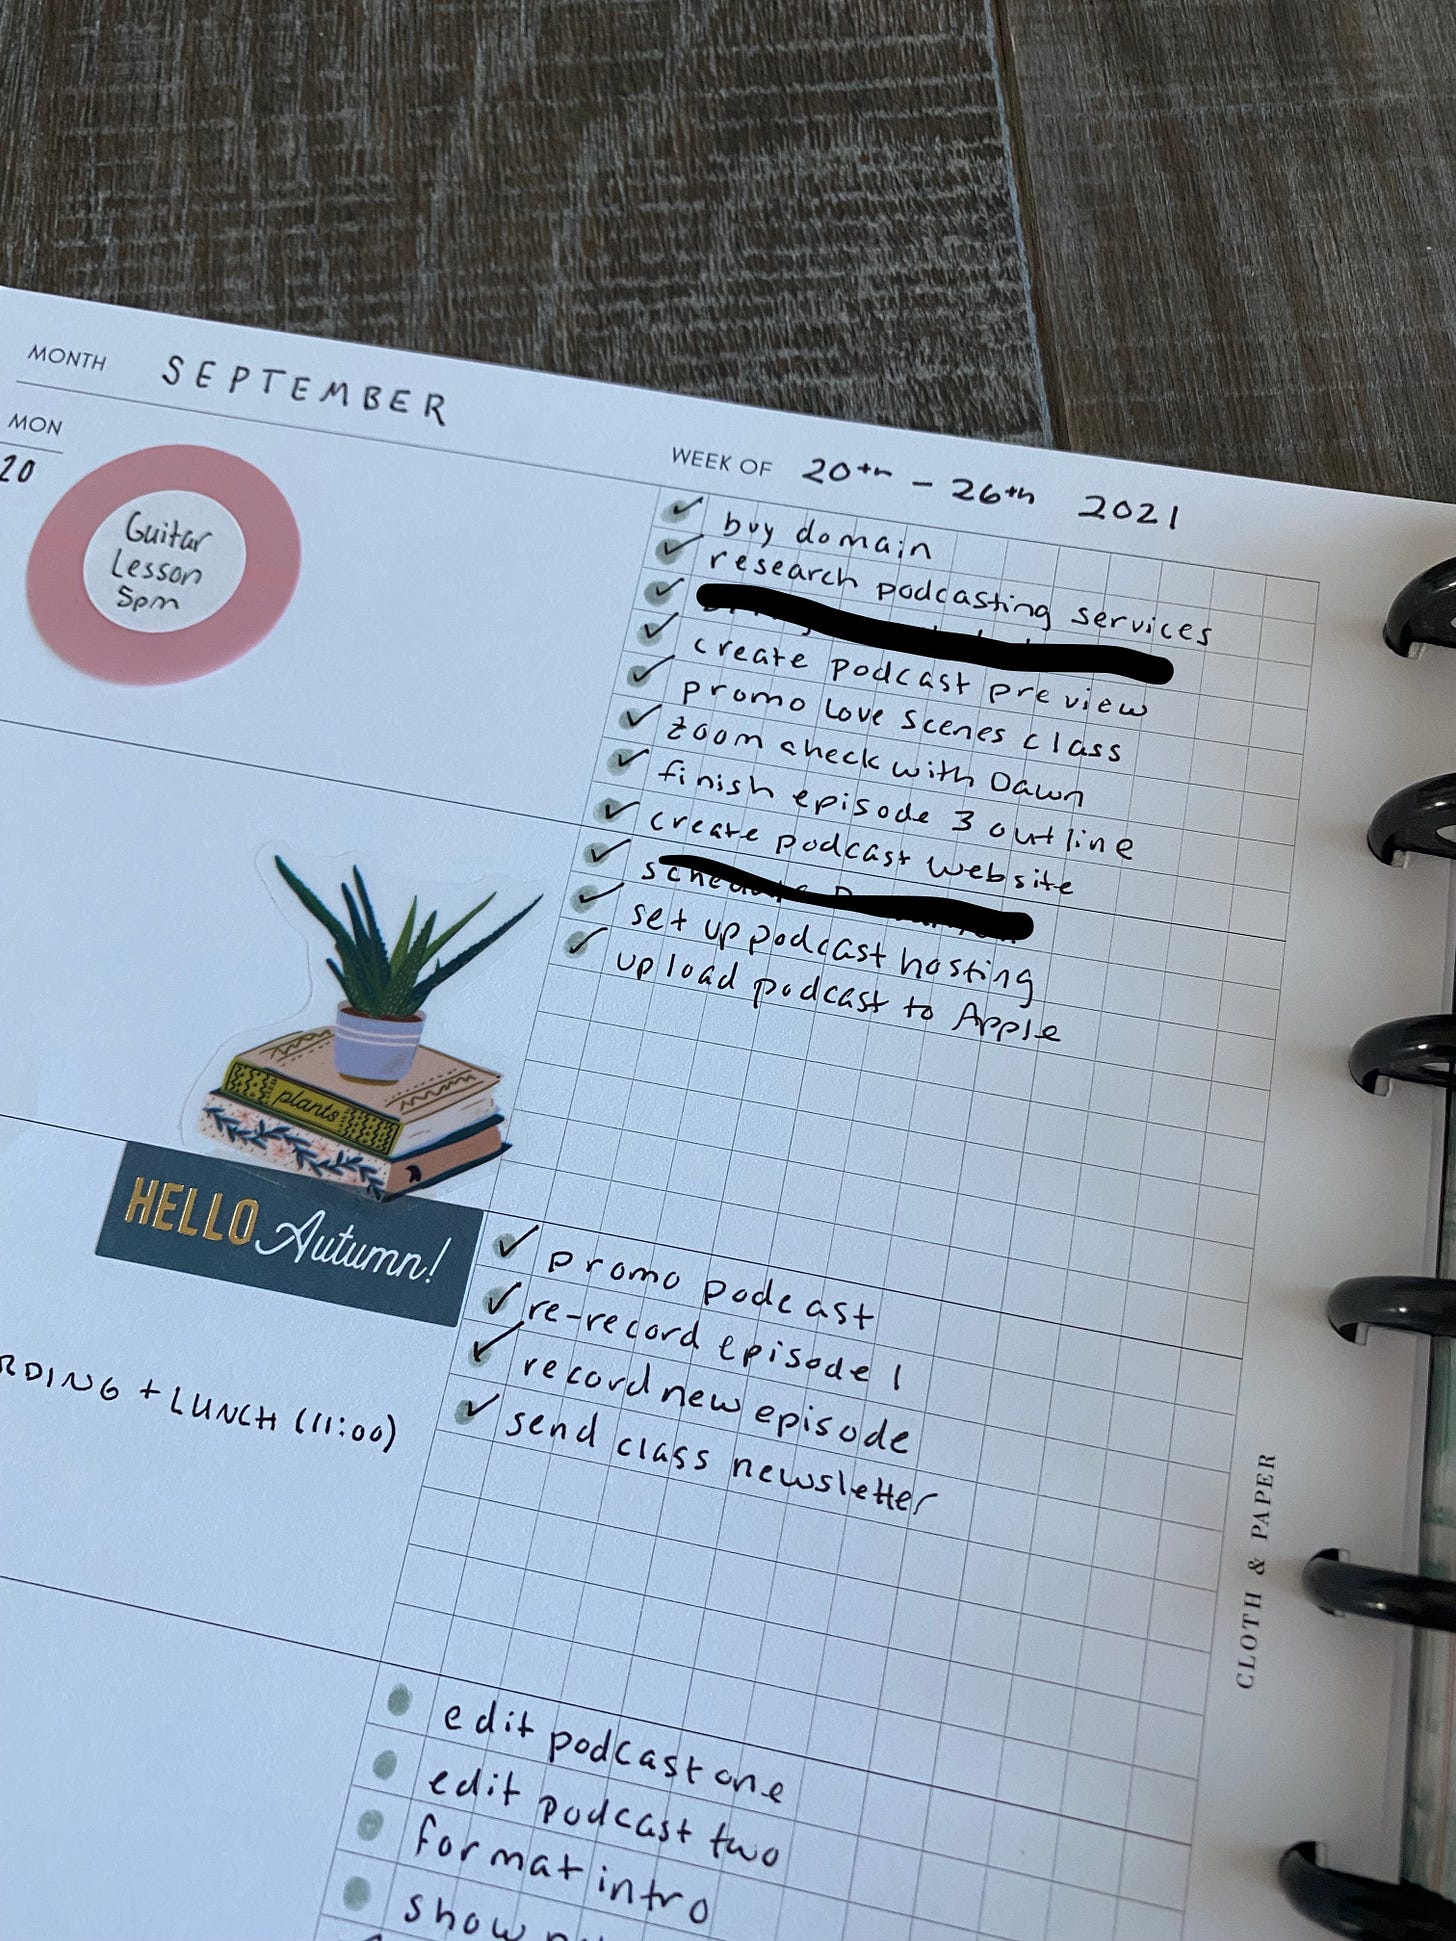 MONTH SEPTEMBER
WEEK OF 20th - 26th 2021
MON
20
Guitar
Lesson
5pm
buy domain
research podcasting services
create podcast preview
promo Love Scenes class
zoom check with Dawn
finish episode 3 outline
create podcast website
set up podcast hosting
upload podcast to Apple
plants
HELLO Autumn!
promo podcast
re-record episode 1
record new episode
send class newsletter
RDING + LUNCH (11:00)
CLOTH & PAPER
edit podcast one
edit podcast two
format intro
show